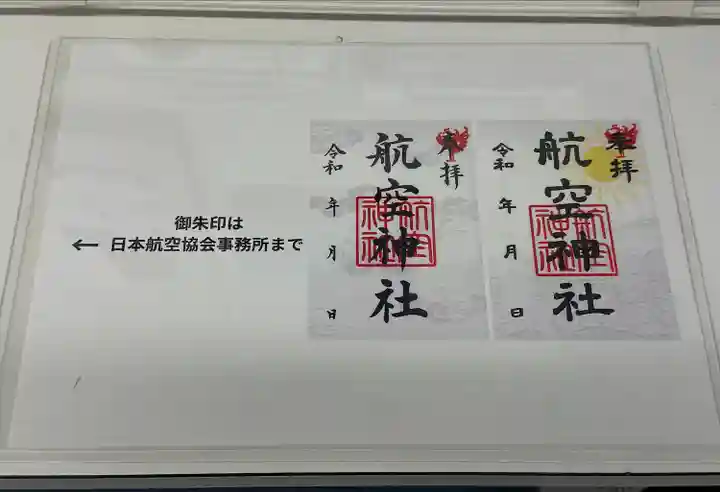 御朱印は
← 日本航空協会事務所まで
奉拝
航空神社
令和 年 月 日
航空神社
奉拝
航空神社
令和 年 月 日
航空神社